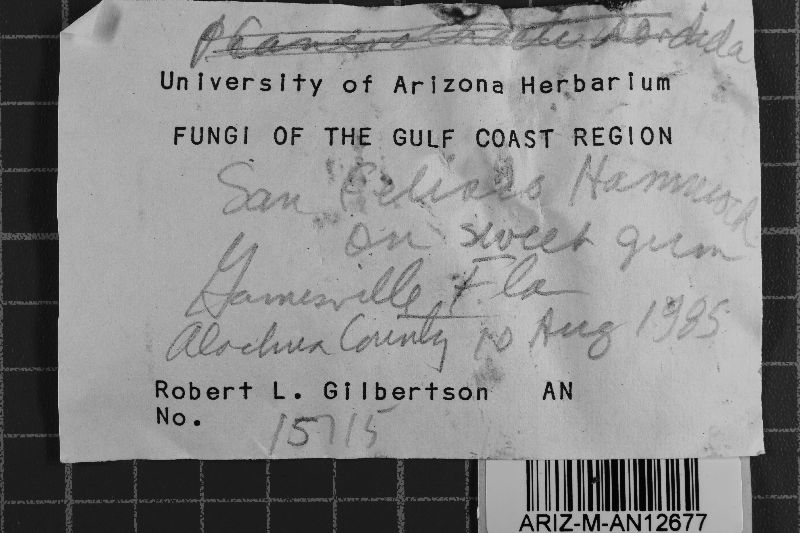 Phanerochaete sordida
University of Arizona Herbarium
FUNGI OF THE GULF COAST REGION
San Felasco Hammock
on sweet gum
Gainesville, Fla
Alachua County 10 Aug 1985
Robert L. Gilbertson AN
No. 15715
ARIZ-M-AN12677